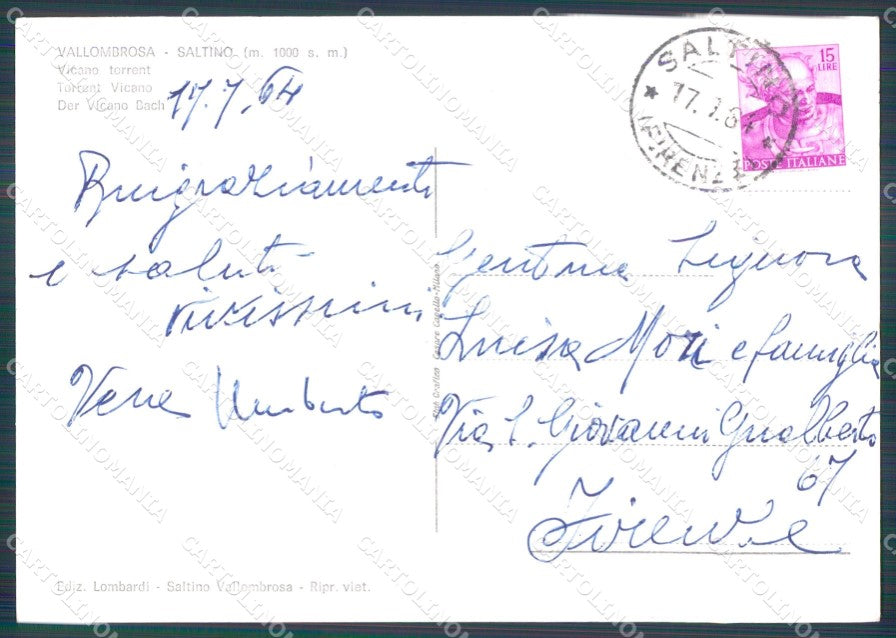 VALLOMBROSA - SALTINO (m. 1000 s. m.)
Vicano torrent
Torrent Vicano
Der Vicano Bach
17.7.64
Ringraziamenti
e saluti
vivissimi
Vera Umberto
SALTINO
17.7.64
(FIRENZE)
15
LIRE
POSTE ITALIANE
Gentma Signora
Luisa Mori e famiglia
Via S. Giovanni Gualberto
67
Firenze
Ediz. Lombardi - Saltino Vallombrosa - Ripr. viet.
CARTOLINOMANIA